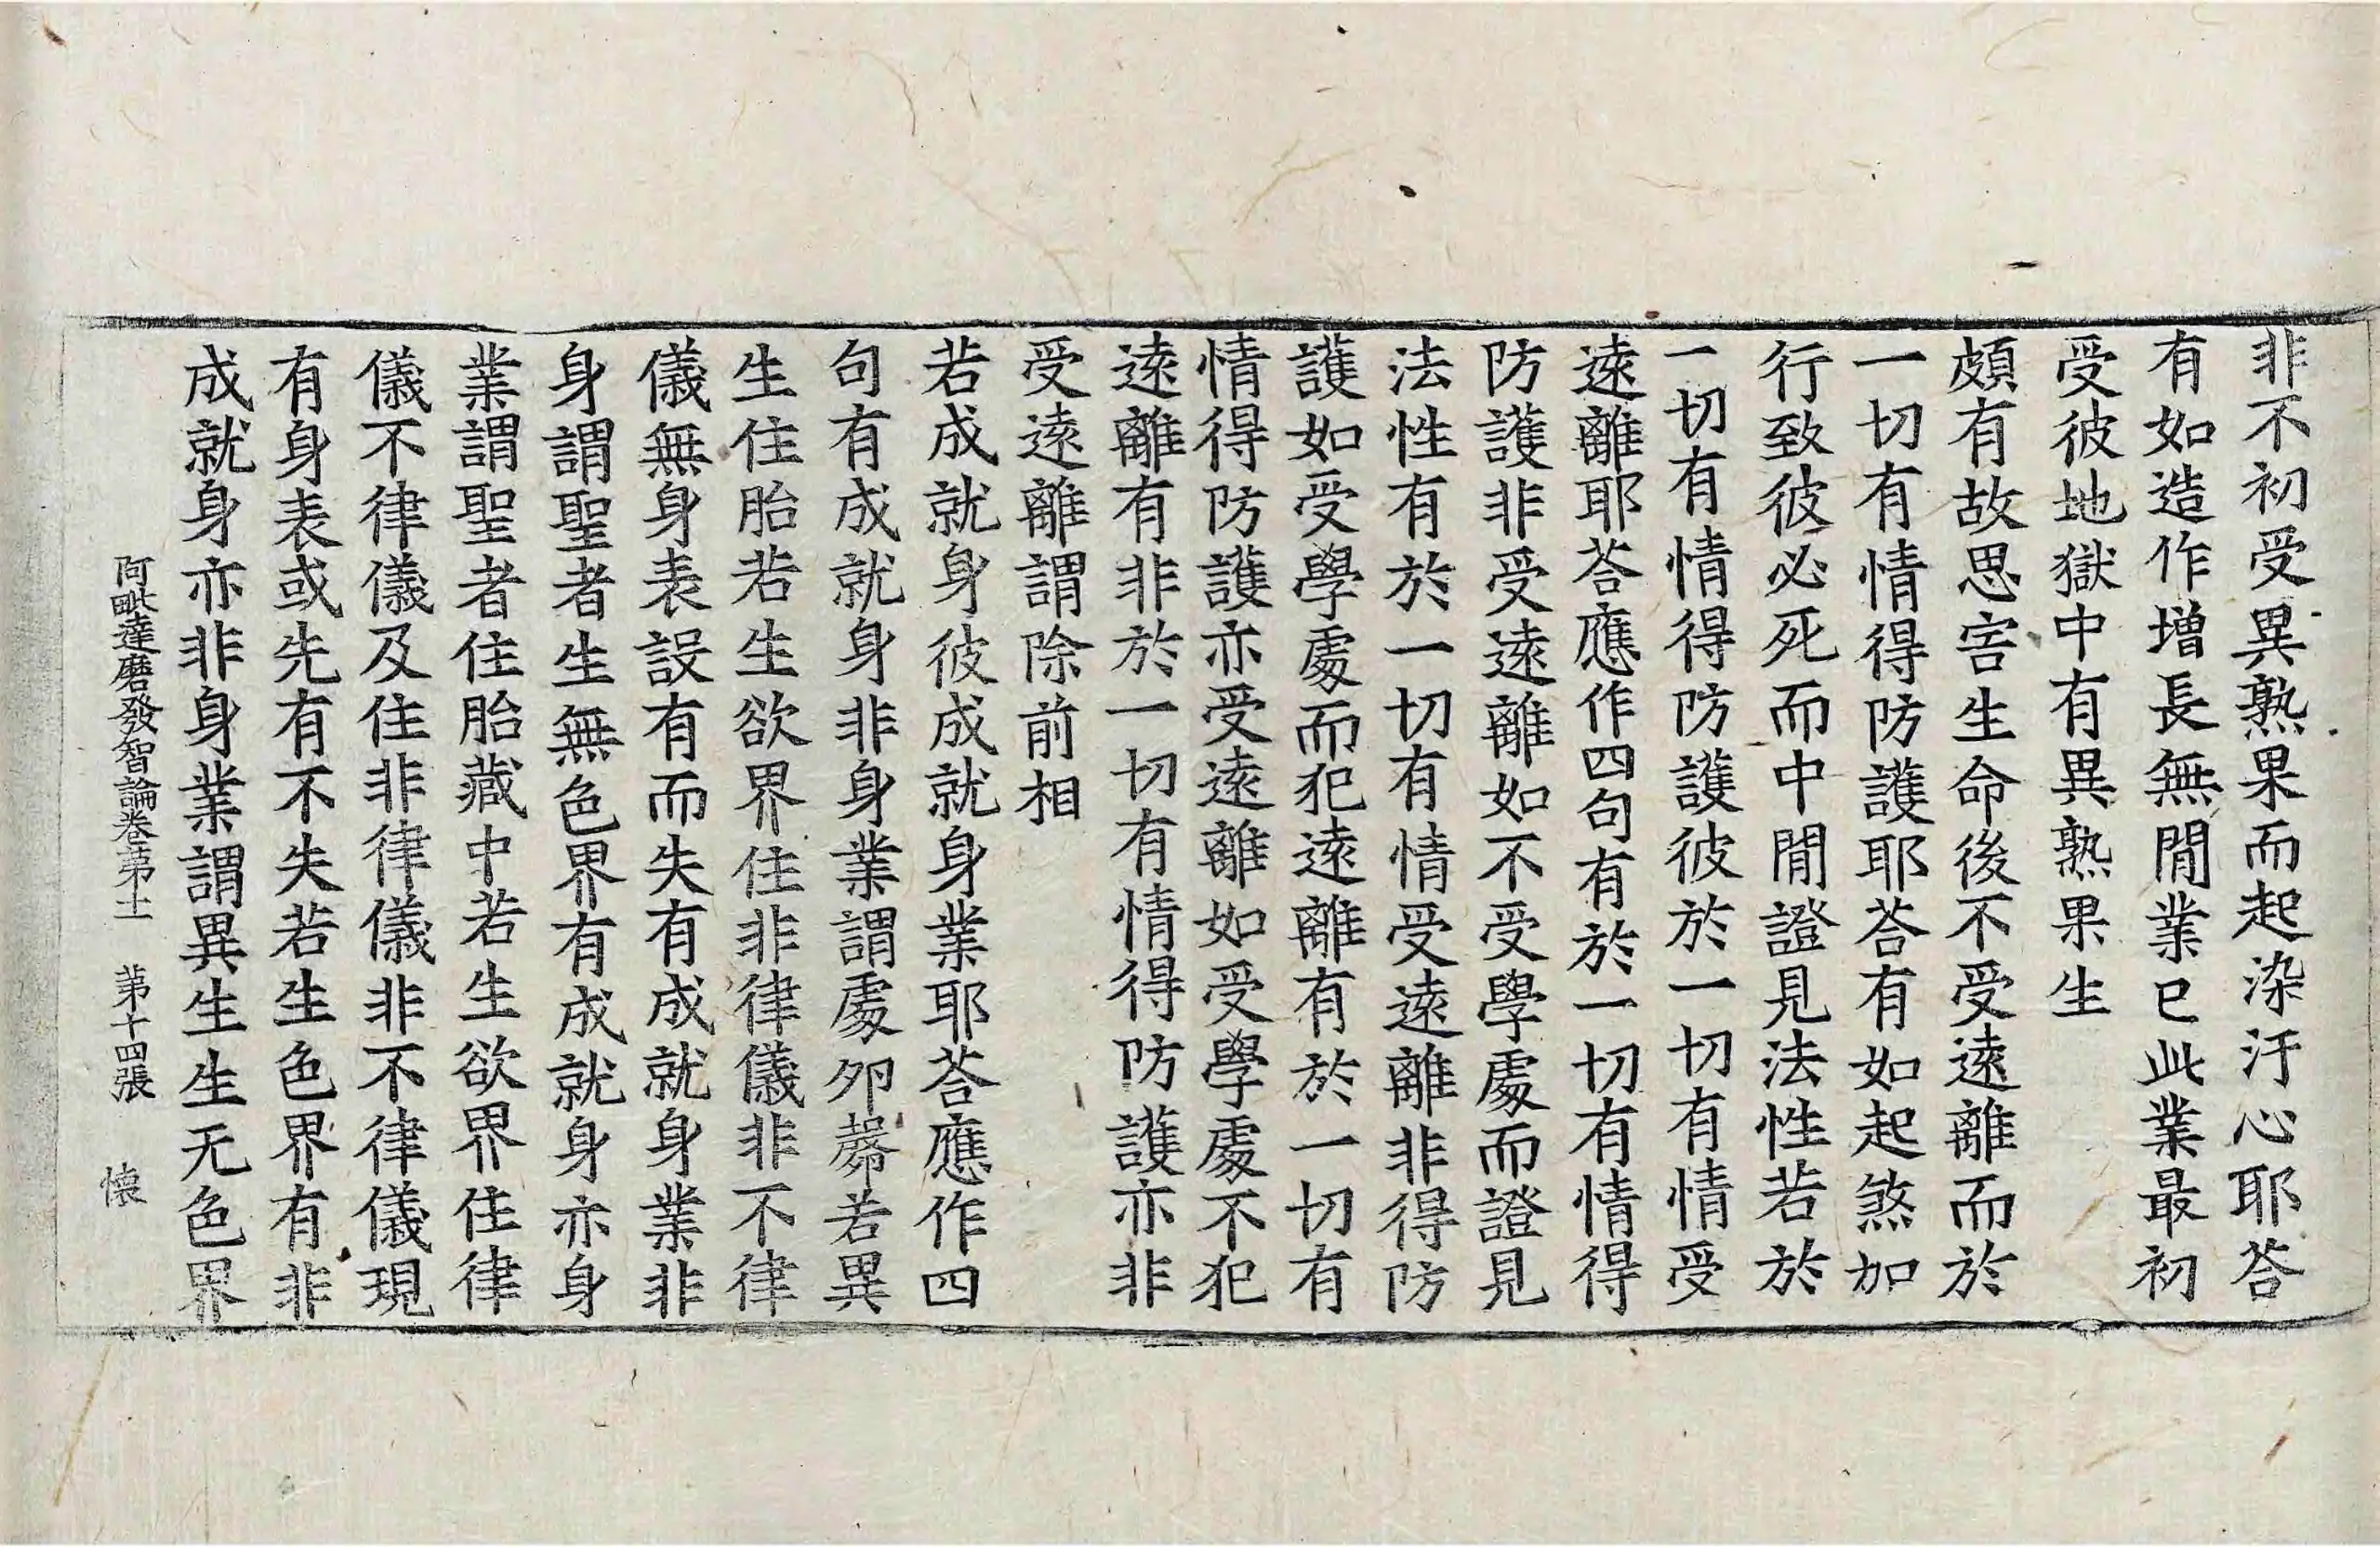 非不初受異熟果而起染汙心耶荅
有如造作增長無閒業已此業最初
受彼地獄中有異熟果生
頗有故思害生命後不受遠離而於
一切有情得防護耶荅有如起煞加
行致彼必死而中閒證見法性若於
一切有情得防護彼於一切有情受
遠離耶荅應作四句有於一切有情得
防護非受遠離如不受學處而證見
法性有於一切有情受遠離非得防
護如受學處而犯遠離有於一切有
情得防護亦受遠離如受學處不犯
遠離有非於一切有情得防護亦非
受遠離謂除前相
若成就身彼成就身業耶荅應作四
句有成就身非身業謂處夘㲉若異
生住胎若生欲界住非律儀非不律
儀無身表設有而失有成就身業非
身謂聖者生無色界有成就身亦身
業謂聖者住胎藏中若生欲界住律
儀不律儀及住非律儀非不律儀現
有身表或先有不失若生色界有非
成就身亦非身業謂異生生无色界
阿毗達磨發智論卷苐十一 苐十四張 懐